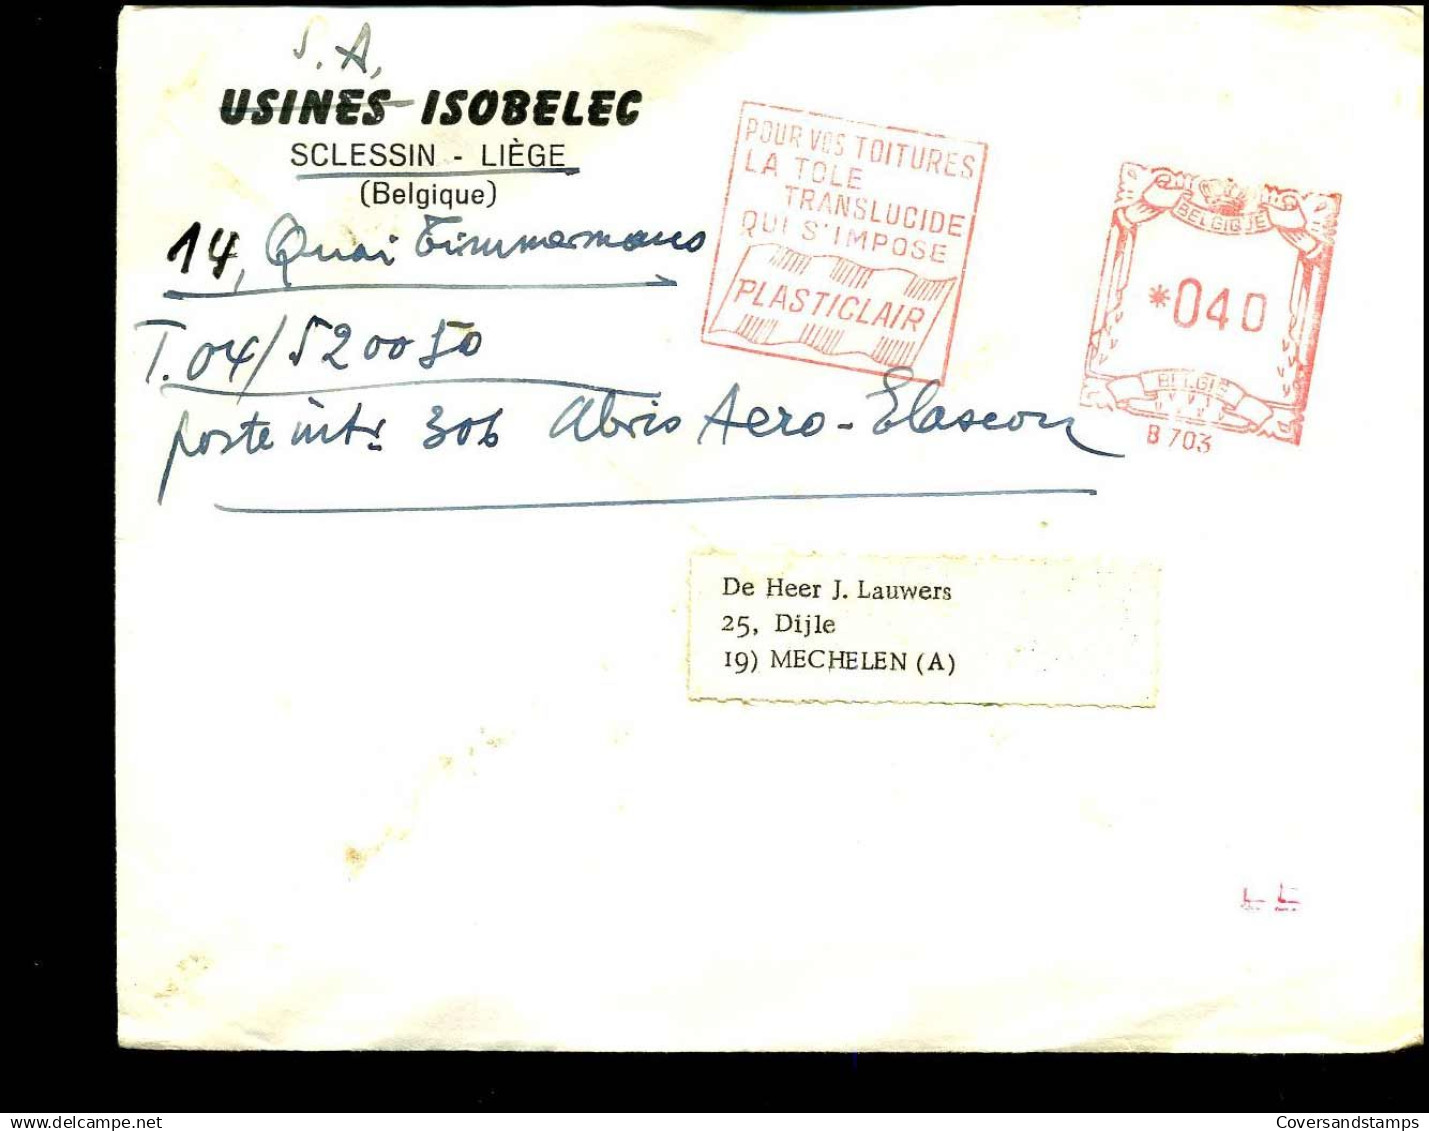 S. A,
USINES ISOBELEC
SCLESSIN - LIÈGE
(Belgique)
14, Quai Timmermans
T. 04/520050
poste intr 306 Abris Aero-Elascon
POUR VOS TOITURES
LA TOLE
TRANSLUCIDE
QUI S'IMPOSE
PLASTICLAIR
BELGIQUE
*040
BELGIE
B 703
De Heer J. Lauwers
25, Dijle
19) MECHELEN (A)
Coversandstamps